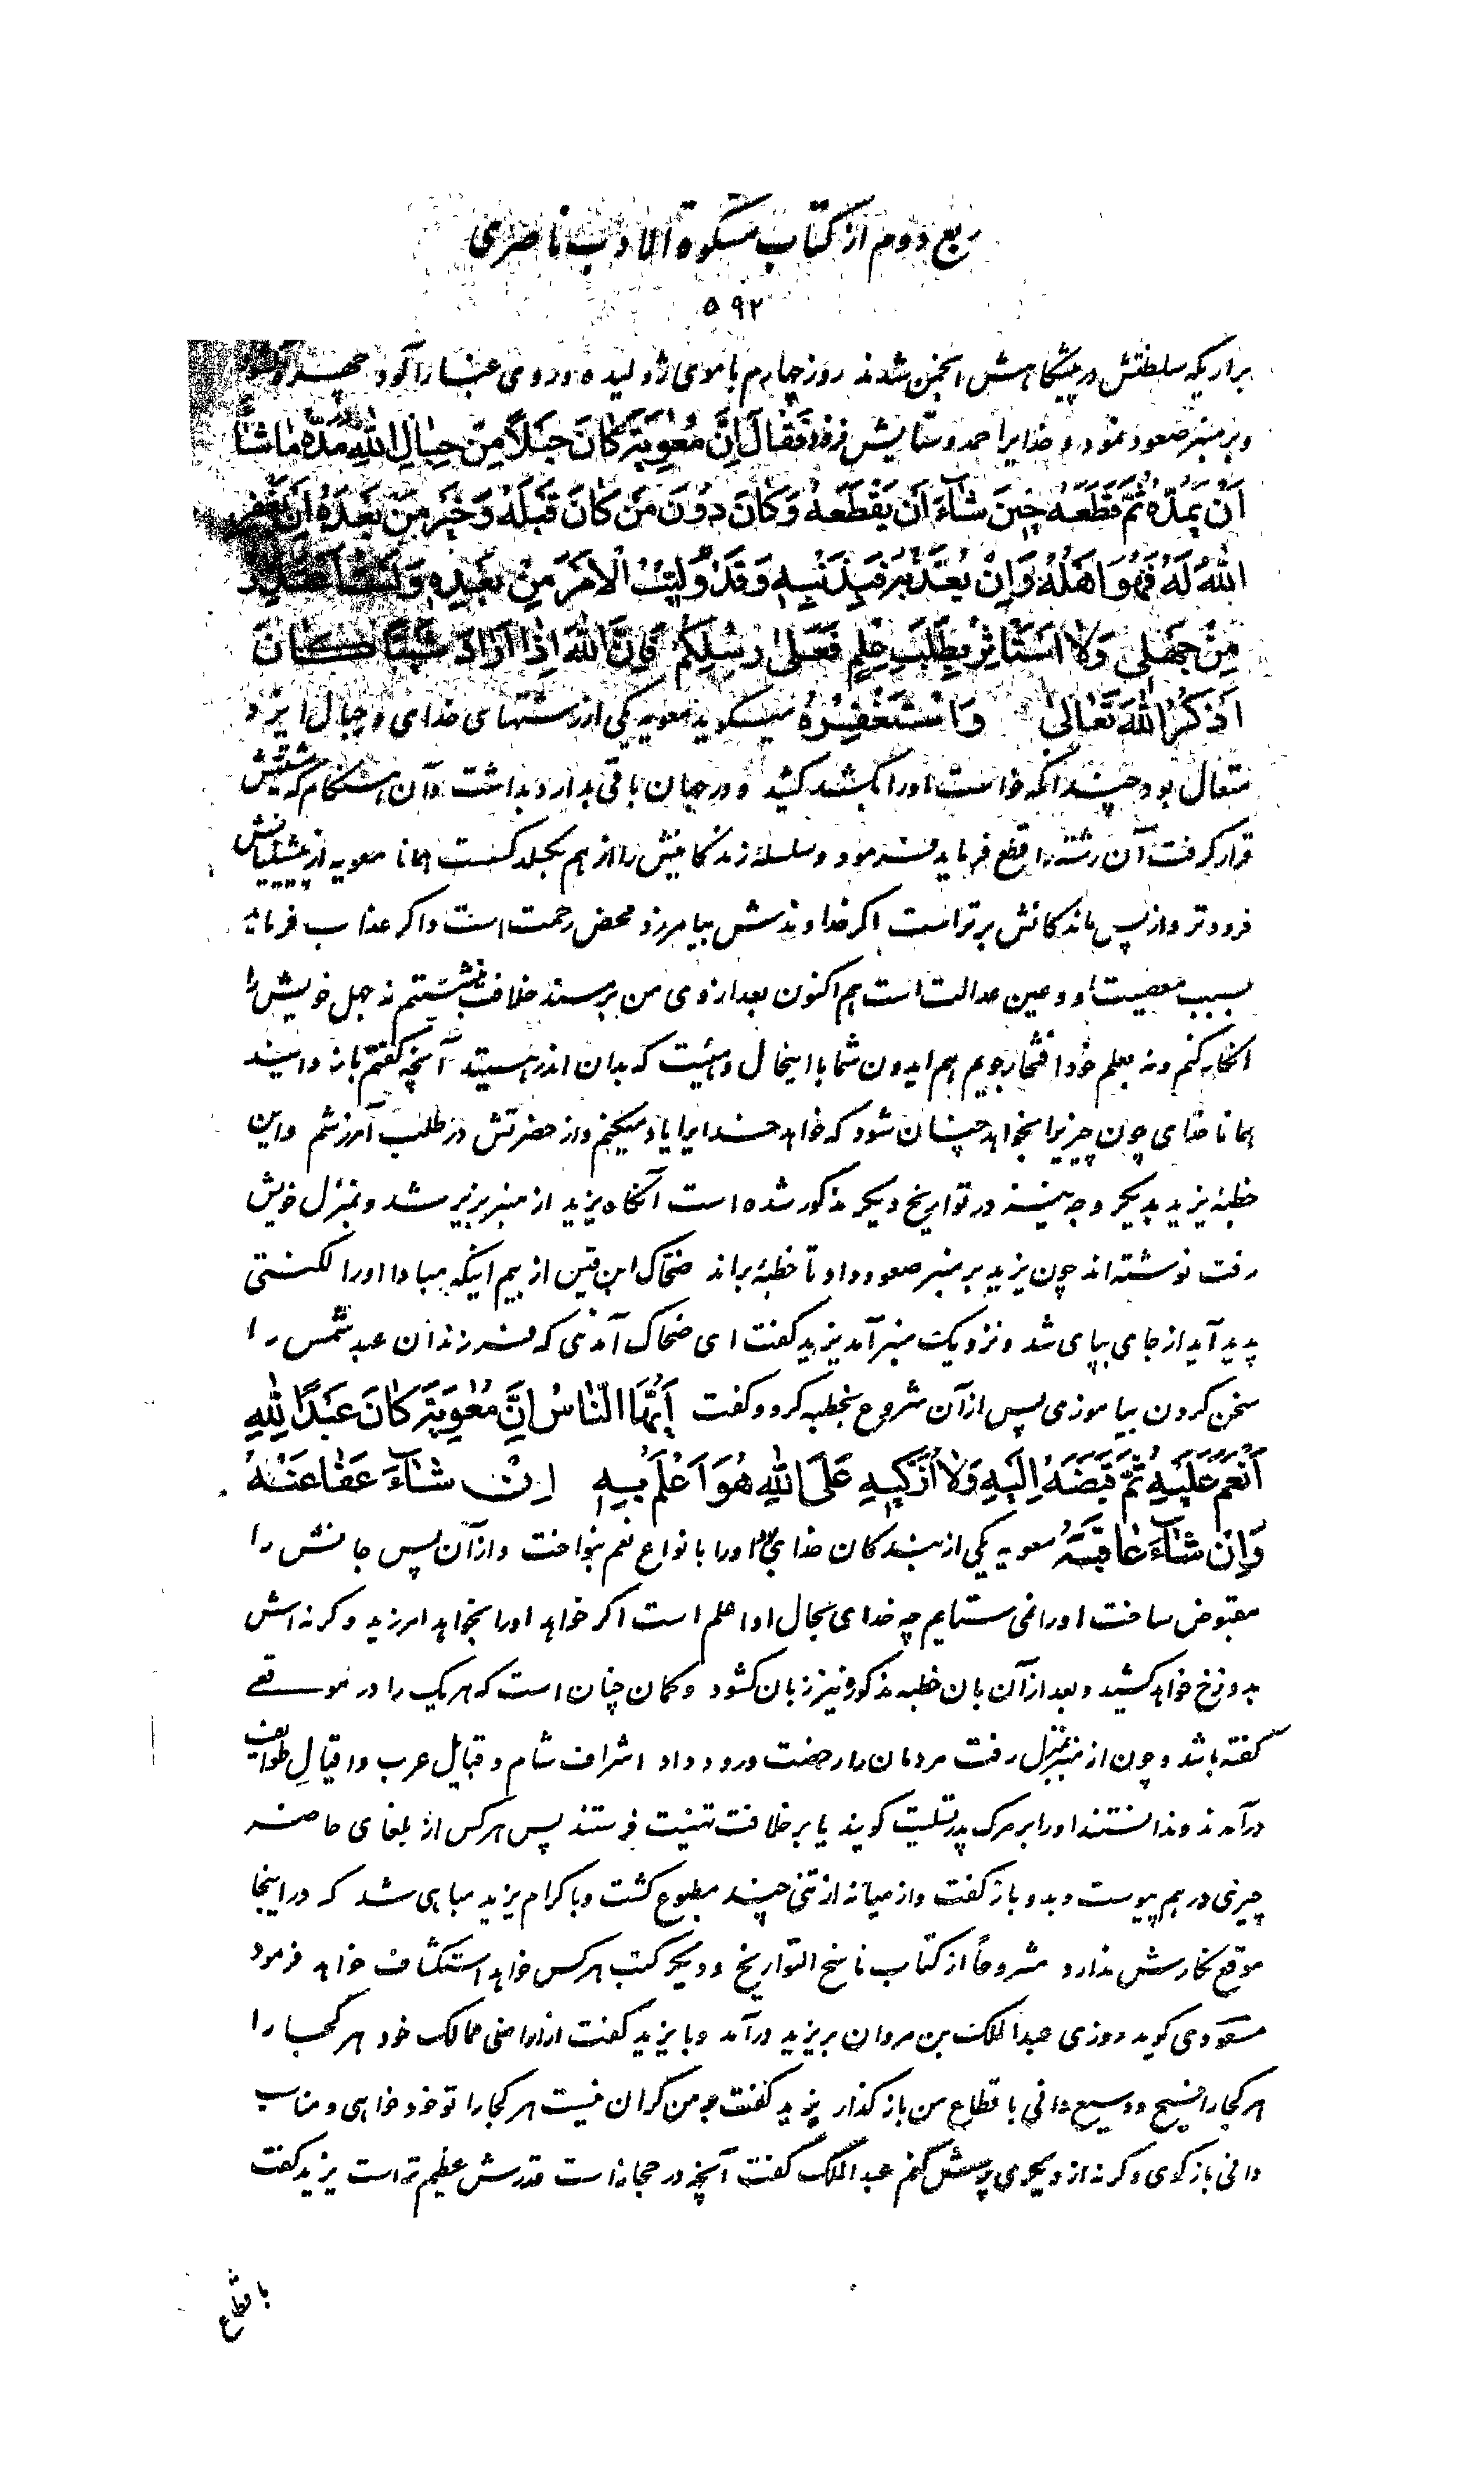 ربع دوم از کتاب مشکوة الادب ناصری
۵۹۲
براریکه سلطنتش در پیشگاهش انجمن شدند روز چهارم با موی ژولیده و روی غبارآلود
و بر منبر صعود نمود و خدایرا حمد و ستایش فَقٰالَ اِنَّ مُعٰوِیَةَ کٰانَ حَبْلاً مِنْ حِبٰالِ اللّٰهِ مَدَّهُ مٰا شٰآءَ
اَنْ یَمُدَّهُ ثُمَّ قَطَعَهُ حینَ شٰآءَ اَنْ یَقْطَعَهُ وَ کٰانَ دُونَ مَنْ کٰانَ قَبْلَهُ وَ خَیْرٌ مِنْ بَعْدَهُ اِنْ یَغْفِرِ
اللّٰهُ لَهُ فَهُوَ اَهْلُهُ وَ اِنْ یُعَذِّبْهُ فَبِذَنْبِهِ وَ قَدْ وُلّیتُ الْاَمْرَ مِنْ بَعْدِهِ وَ لَسْتُ اَعْتَذِرُ
مِنْ جَهْلی وَ لاٰ اَسْتَأْثِرُ بِطَلَبِ عِلْمٍ فَعَلیٰ رِسْلِکُمْ فَاِنَّ اللّٰهَ اِذٰا اَرٰادَ شَیْئاً کٰانَ
اَذْکُرُ اللّٰهَ تَعٰالیٰ وَ اَسْتَغْفِرُهُ میگوید معویه یکی از رشتهای خدای و حبال ایزد
متعال بود چندانکه خواست او را بکشید و در جهان باقی بداشت و آن هنگام که مشیتش
قرار گرفت آن رشته را قطع فرماید فرمود و سلسلهٔ زندگانیش را از هم بگسست همانا معویه از پیشینیانش
فرودتر و از پس ماندگانش برتر است اگر خداوندش بیامرزد محض رحمت است و اگر عذاب فرماید
بسبب معصیت او و عین عدالت است هم اکنون بعد از وی من بر مسند خلافت بنشستم نه جهل خویش را
انکار کنم و نه بعلم خود افتخار جویم هم ایدون شما با اینحال و هیئت که بدان اندر هستید آنچه گفتم باز دانید
همانا خدای چون چیزیرا بخواهد چنان شود که خواهد خدایرا یاد میکنم و از حضرتش در طلب آمرزشم و این
خطبهٔ یزید بدیگر وجه نیز در تواریخ دیگر مذکور شده است آنگاه یزید از منبر بزیر شد و بمنزل خویش
رفت نوشته‌اند چون یزید بر منبر صعود داد تا خطبهٔ براند ضحّاک ابن قیس از بیم اینکه مبادا او را لکنتی
پدید آید از جای بپای شد و نزدیک منبر آمد یزید گفت ای ضحاک آمدی که فرزندان عبد شمس را
سخن کردن بیاموزی پس از آن شروع بخطبه کرد و گفت اَیُّهَا النّٰاسُ اِنَّ مُعٰوِیَةَ کٰانَ عَبْداً لِلّٰهِ
اَنْعَمَ عَلَیْهِ ثُمَّ قَبَضَهُ اِلَیْهِ وَ لاٰ اُزَکّیهِ عَلَی اللّٰهِ هُوَ اَعْلَمُ بِهِ اِنْ شٰآءَ عَفٰا عَنْهُ
وَ اِنْ شٰآءَ عٰاقَبَهُ معویه یکی از بندگان خدای او را بانواع نعم بنواخت و از آن پس جانش را
مقبوض ساخت او را نمی ستایم چه خدای بحال او اعلم است اگر خواهد او را بخواهد امرزید و گرنه اش
بدوزخ خواهد کشید و بعد از آن بان خطبه مذکور نیز زبان گشود و گمان چنان است که هر یک را در موقعی
گفته باشد و چون از منبر بمنزل رفت مردمان را رخصت ورود داد اشراف شام و قبایل عرب و اقیال طوایف
درآمدند و ندانستند او را بر مرگ پدر تسلیت گویند یا بر خلافت تهنیت فرستند پس هر کس از بلغای حاضر
چیزی در هم پیوست و بدو باز گفت و از میانه از تنی چند مطبوع گشت و باکرام یزید مباهی شد که در اینجا
موقع نگارش ندارد مشروحاً از کتاب ناسخ التواریخ و دیگر کتب هر کس خواهد استکشاف خواهد فرمود
مسعودی گوید روزی عبدالملک بن مروان بر یزید درآمد و با یزید گفت از اراضی ممالک خود هر کجا را
هر کجا را فسیح و وسیع دانی باقطاع من باز گذار یزید گفت بر من گران نیست هر کجا را تو خود خواهی و مناسب
دانی باز گوی و گرنه از دیگری پرسش کنم عبدالملک گفت آنچه در حجاز است قدرش عظیم تر است یزید گفت
باقطاع